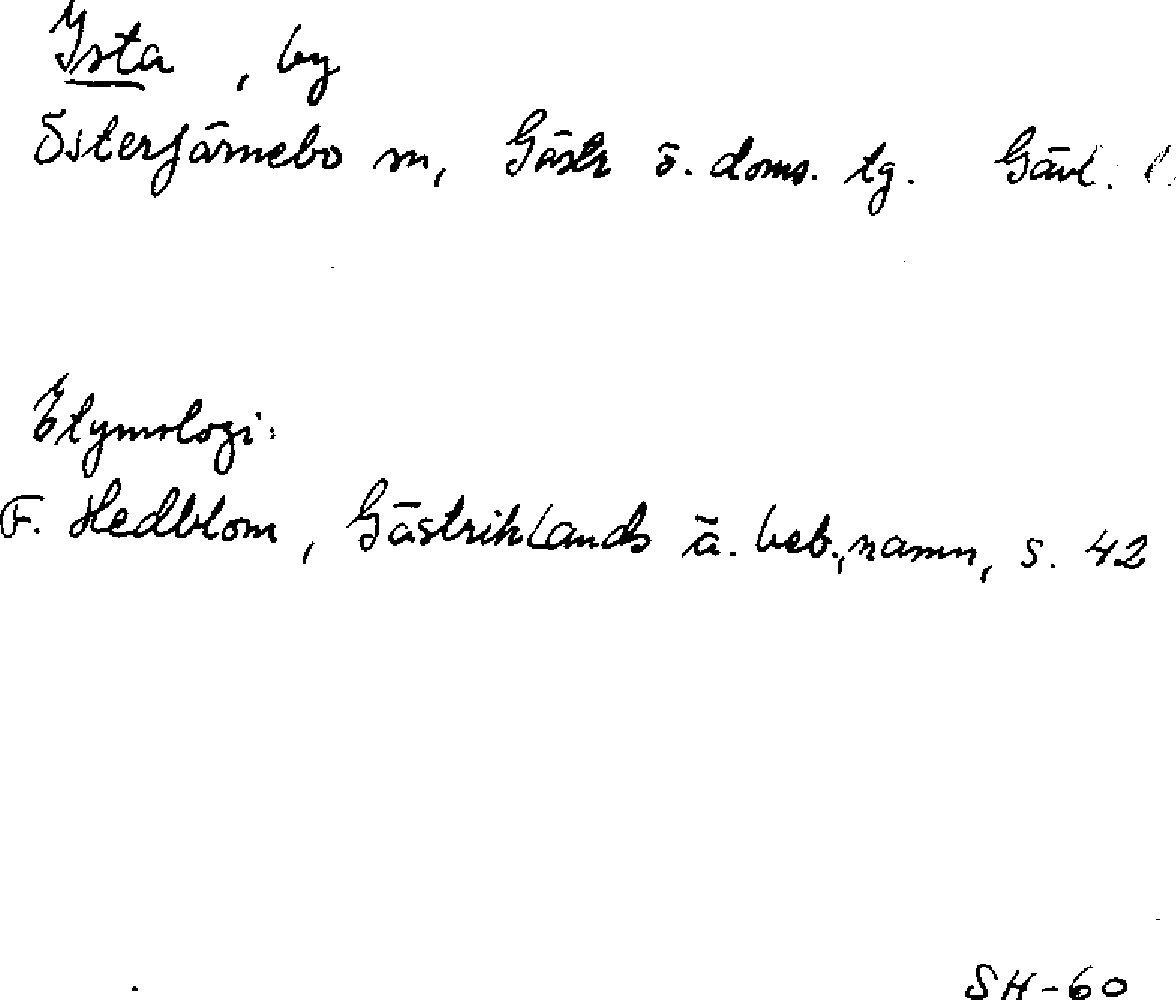 Ista, by
Österfärnebo sn, Gästr ö. doms. tg. Gävl. l.
Etymologi:
F. Hedblom, Gästriklands ä. beb.namn, s. 42
SH-60